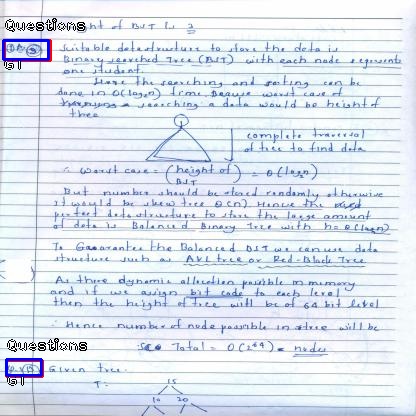 Questions
height of BST is 2
Suitable data structure to store the data is
Binary searched Tree (BST) with each node represents
one student.
61
Here the searching and sorting can be
done in O(log2n) time. Because worst case of
searching a data would be height of
tree
complete traversal
of tree to find data
∴ Worst case = (height of BST) = O(log2n)
But number should be stored randomly otherwise
it would be skew tree O(n) Hence the
perfect data structure to store the large amount
of data is Balanced Binary Tree with h=O(log n)
To Gaurantee the Balanced BST we can use data
structure such as AVL tree or Red-Black Tree
As there dynamic allocation possible in memory
and if we assign bit code to each level
then the height of tree will be of 64 bit level
∴ Hence number of node possible in tree will be
Questions
Total = O(2^64) nodes
Given tree.
61
T:
15
10 20